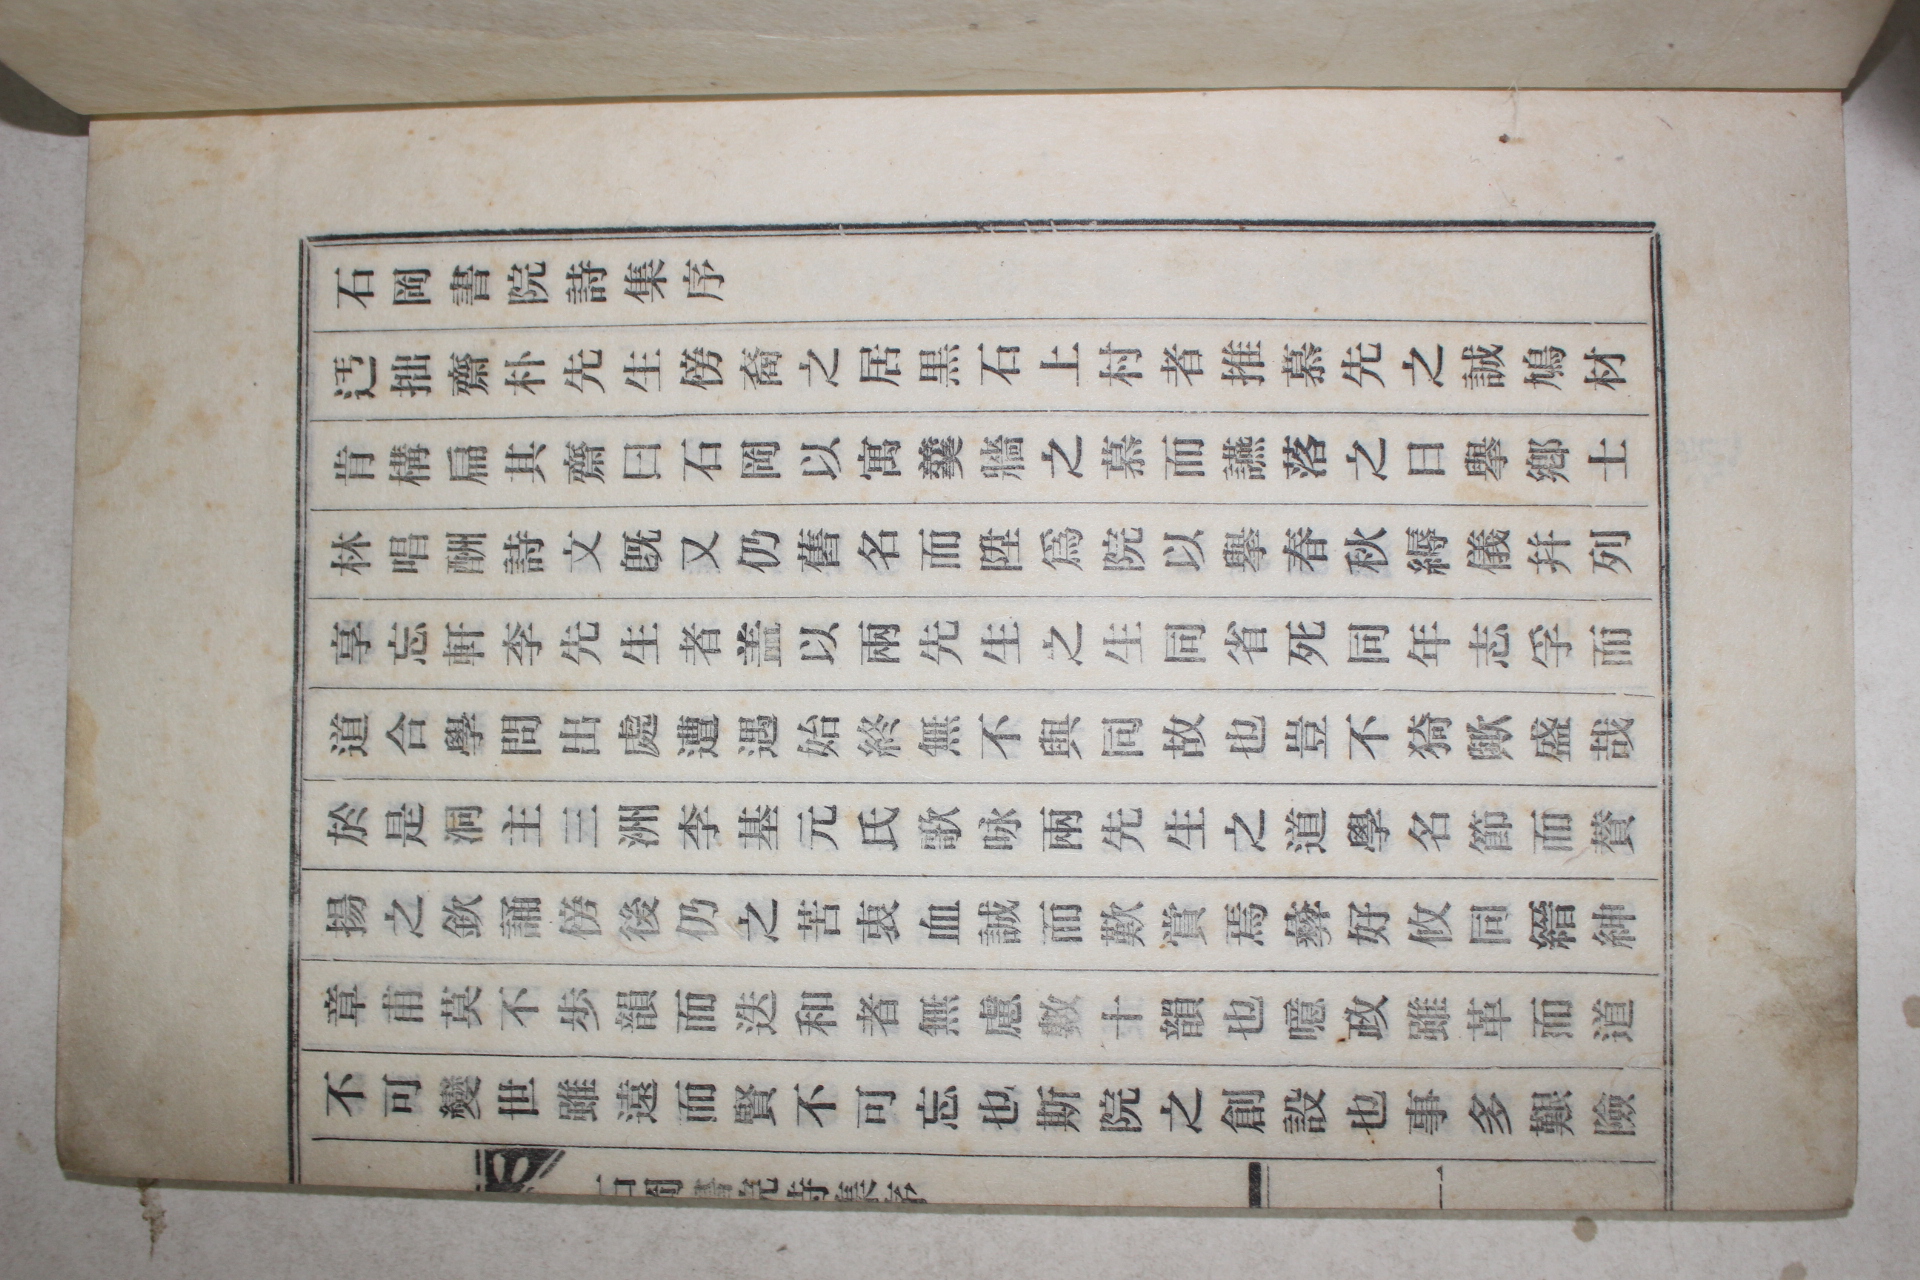 石岡書院詩集序
迃拙齋朴先生傍裔之居黒石上村者推慕先之誠鳩材
肯構扁其齋曰石岡以寓羹牆之慕而讌落之日擧鄉士
林唱酬詩文旣又仍舊名而陞爲院以擧春秋縟儀幷列
享忘軒李先生者盖以兩先生之生同省死同年志孚而
道合學問出處遭遇始終無不與同故也豈不猗歟盛哉
於是洞主三洲李基元氏歌咏兩先生之道學名節而賛
揚之欽誦傍後仍之苦衷血誠而歎賞焉彝好攸同縉紳
章甫莫不步韻而迭和者無慮數十韻也噫政雖革而道
不可變世雖遠而賢不可忘也斯院之創設也事多艱險
石岡書院詩集序 一